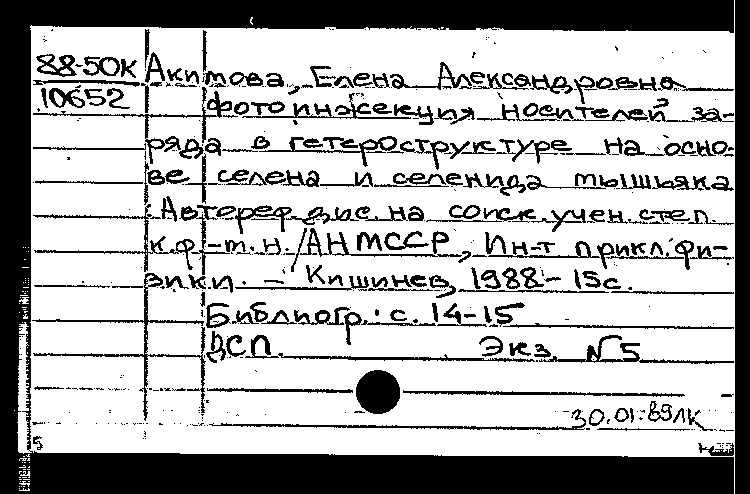 88-50К Акимова, Елена Александровна
10652 Фотоинжекция носителей за-
ряда в гетероструктуре на осно-
ве селена и селенида мышьяка
: Автореф. дис. на соиск. учен. степ.
к.ф.-м.н. / АН МССР, Ин-т прикл. фи-
зики. – Кишинев, 1988 – 15с.
Библиогр.: с. 14-15
ДСП. Экз. N 5
30.01.89ЛК
5